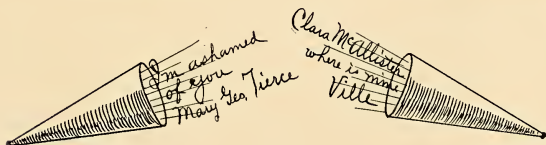 I'm ashamed
of you
Mary Geo. Tierce
Clara McAllister
where is mme
Ville